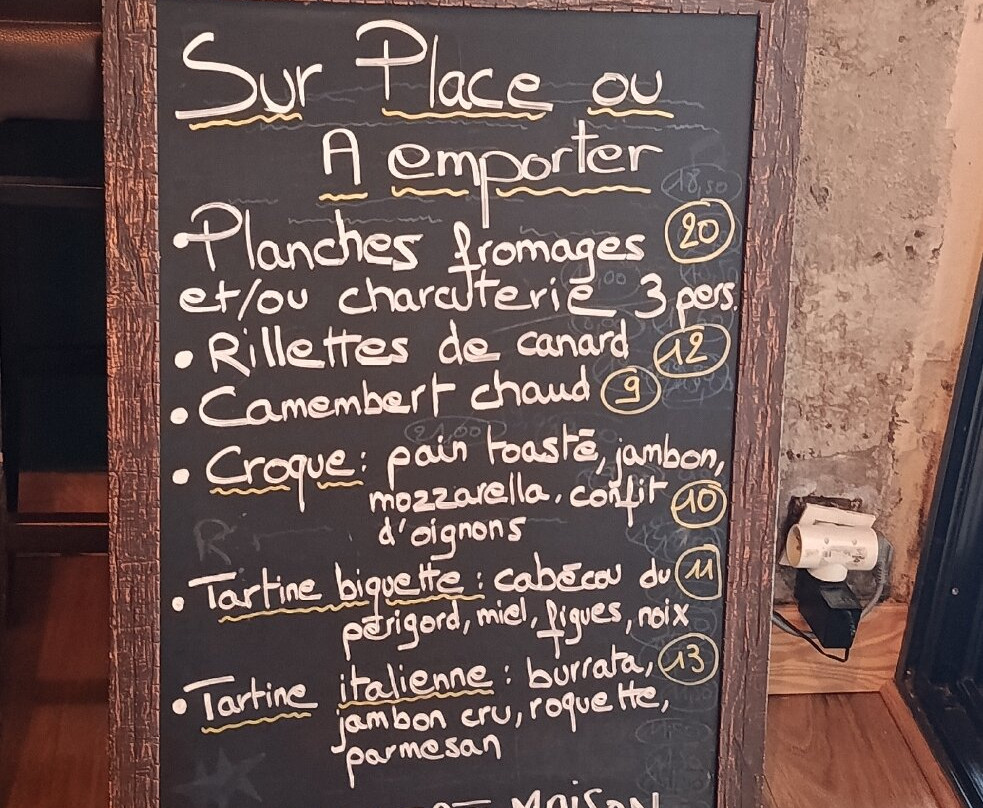 Sur Place ou
A emporter
18,50
• Planches fromages 20
et/ou charcuterie 3 pers.
• Rillettes de canard 12
• Camembert chaud 9
21,00
• Croque : pain toasté, jambon,
mozzarella, confit 10
d'oignons
• Tartine biquette : cabécou du 11
périgord, miel, figues, noix
• Tartine italienne : burrata, 13
jambon cru, roquette,
parmesan
MAISON